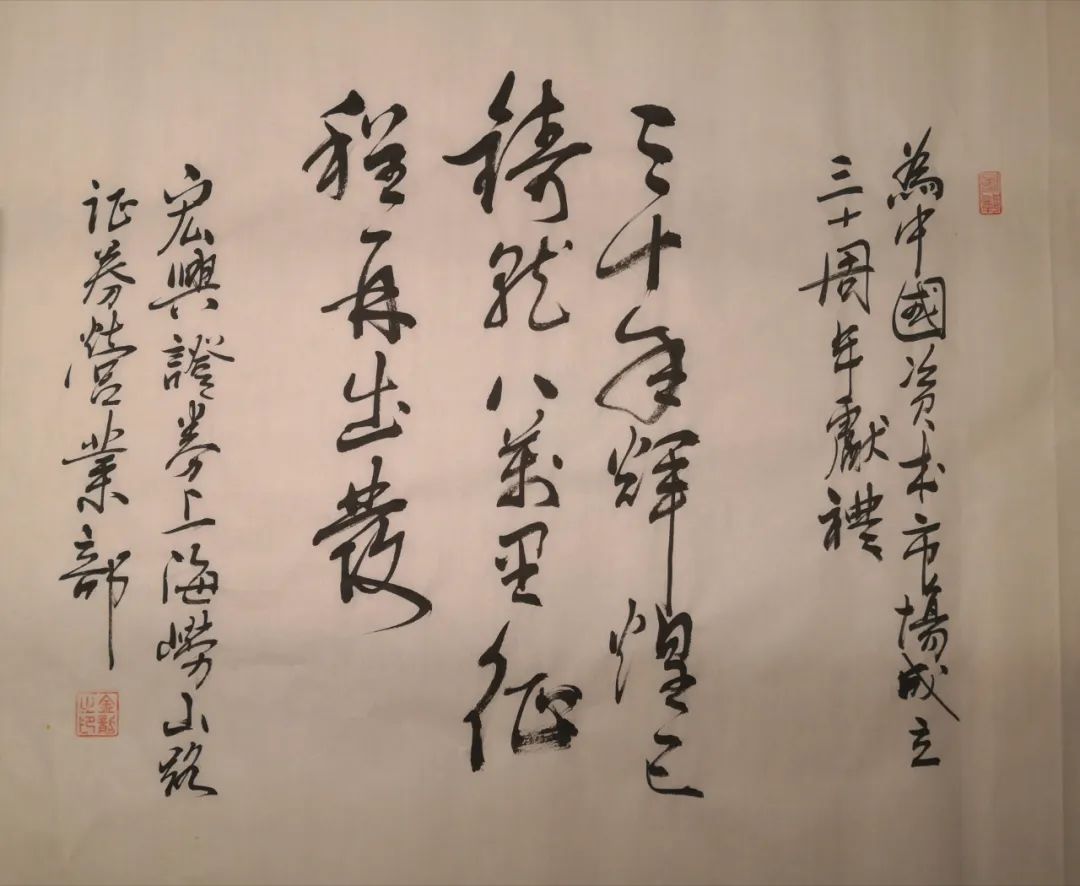 為中國资本市場成立
三十周年獻禮
三十年輝煌已
鑄就八萬里征
程再出發
宏興證券上海嶗山路
证券營業部